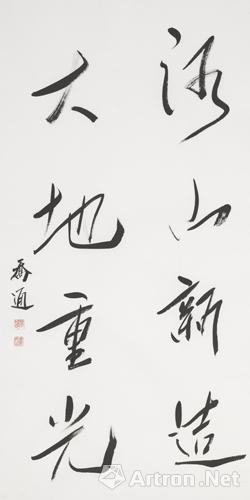 河山新造
大地重光
Artron.Net